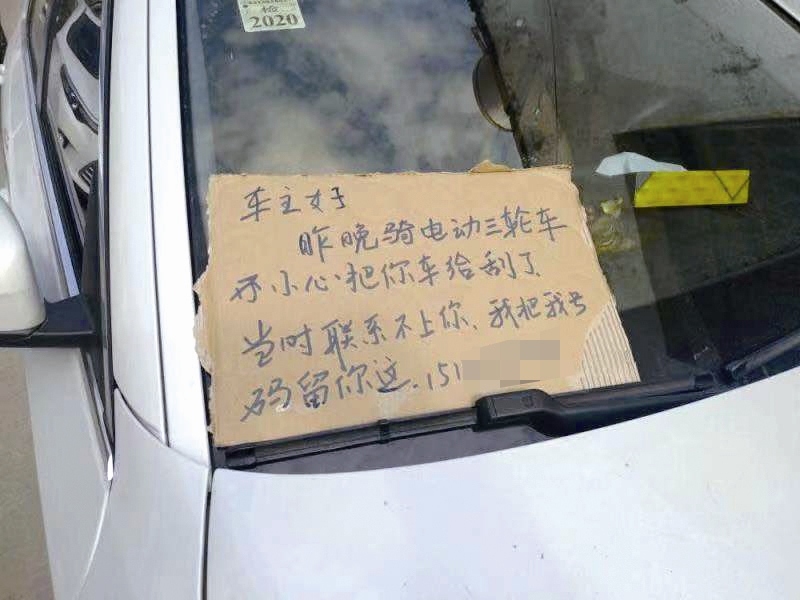 检
2020
车主好
昨晚骑电动三轮车
不小心把你车给刮了
当时联系不上你、我把我号
码留你这.151